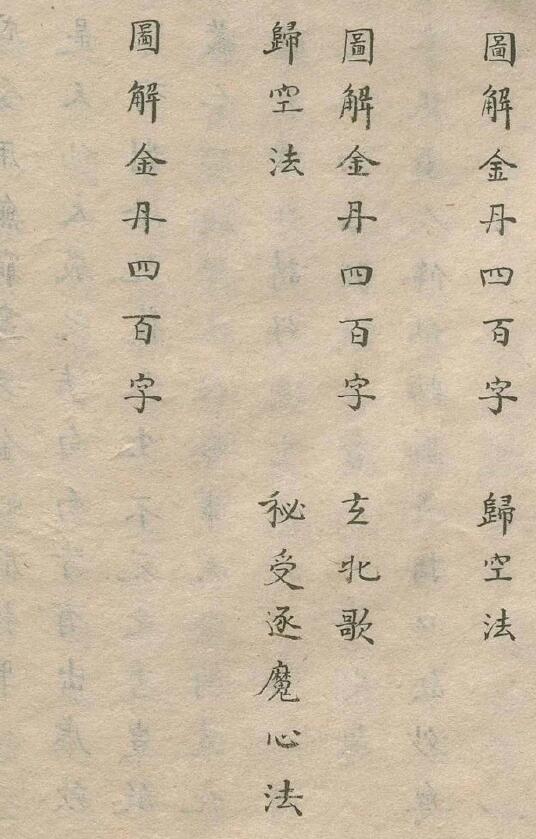 圖解金丹四百字 歸空法
圖解金丹四百字 玄牝歌
歸空法 祕受逐魔心法
圖解金丹四百字